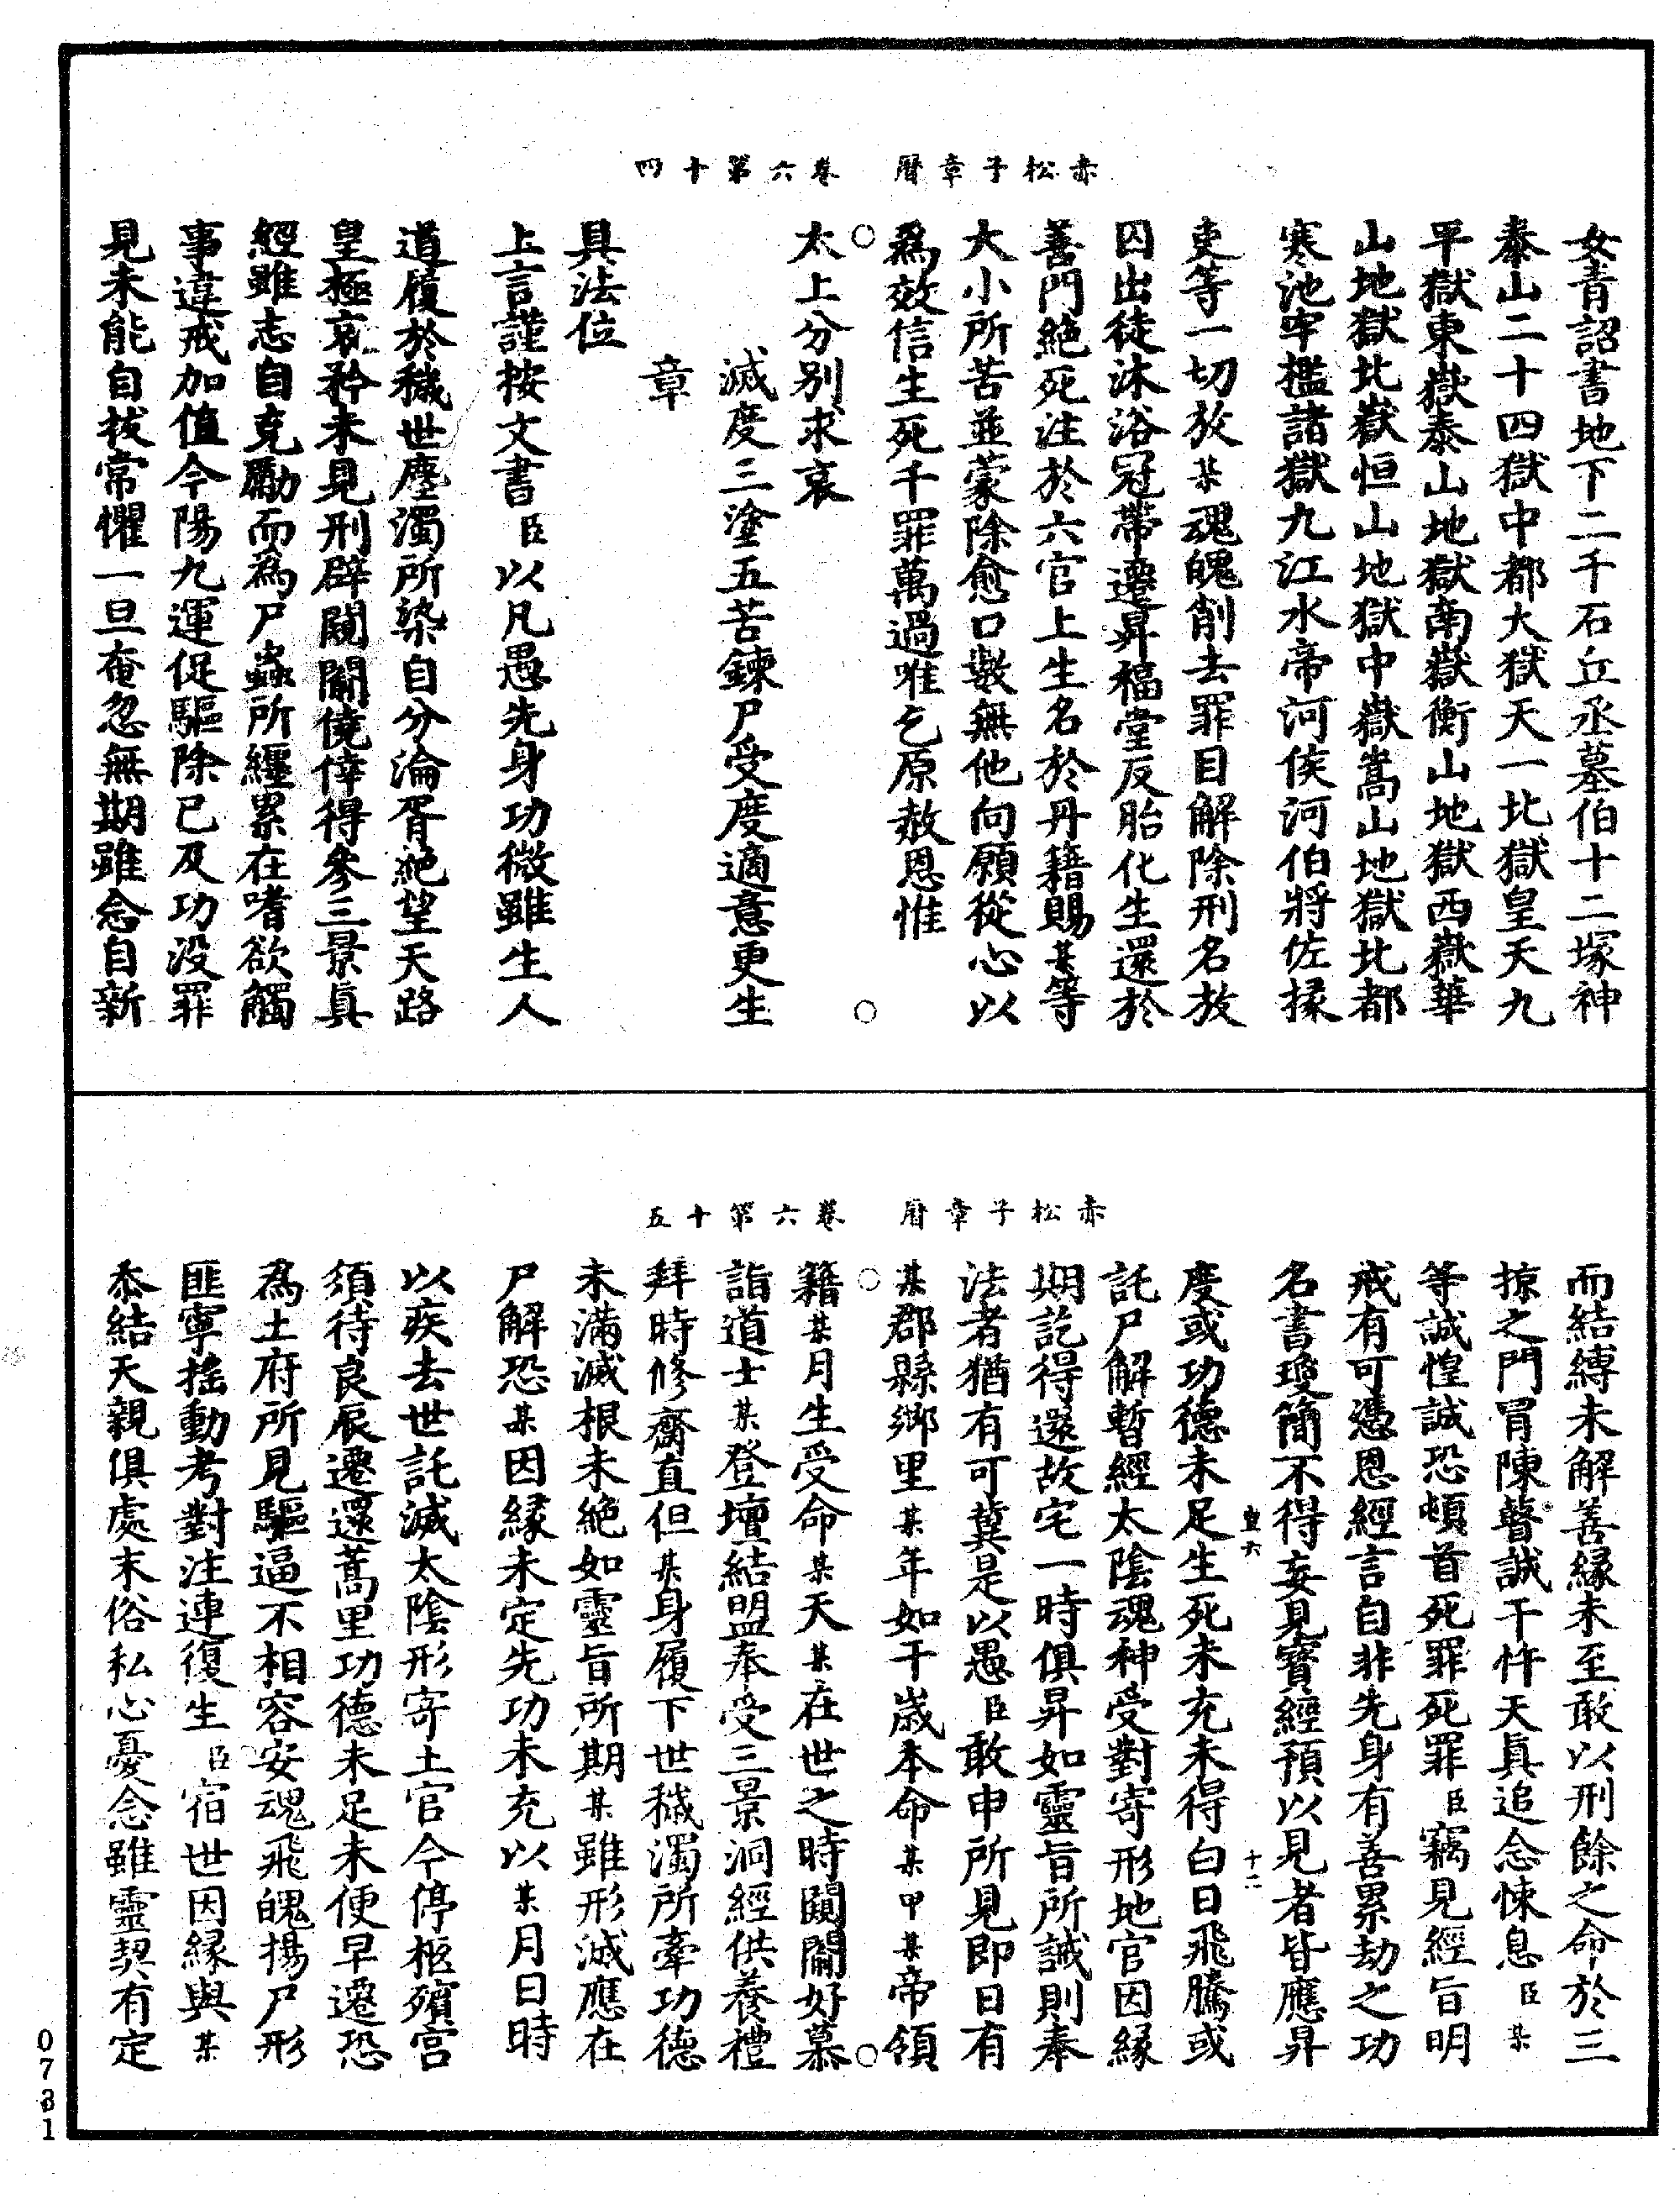 赤松子章曆　卷六第十四
女青詔書地下二千石丘丞墓伯十二塚神
泰山二十四獄中都大獄天一北獄皇天九
平獄東嶽泰山地獄南嶽衡山地獄西嶽華
山地獄北嶽恒山地獄中嶽嵩山地獄北都
寒池牢檻諸獄九江水帝河侯河伯將佐掾
吏等一切放某魂魄削去罪目解除刑名放
囚出徒沐浴冠帶遷昇福堂反胎化生還於
善門絕死注於六官上生名於丹籍賜某等
大小所苦並蒙除愈口數無他向願從心以
爲效信生死千罪萬過唯乞原赦恩惟
太上分別求哀
滅度三塗五苦鍊尸受度適意更生
章
具法位
上言謹按文書臣以凡愚先身功微雖生人
道履於穢世塵濁所染自分淪胥絕望天路
皇極哀矜未見刑辟闚䦨僥倖得參三景真
經雖志自克勵而爲尸蟲所纏累在嗜欲觸
事違戒加值今陽九運促驅除已及功沒罪
見未能自拔常懼一旦奄忽無期雖念自新
赤松子章曆　卷六第十五
而結縛未解善緣未至敢以刑餘之命於三
掠之門冐陳瞽誠干忤天真追念悚息臣某
等誠惶誠恐頓首死罪死罪臣竊見經旨明
戒有可憑恩經言自非先身有善累劫之功
名書瓊簡不得妄見寶經預以見者皆應昇
度或功德未足生死未充未得白日飛騰或
託尸解暫經太陰魂神受對寄形地官因緣
期訖得還故宅一時俱昇如靈旨所誡則奉
法者猶有可冀是以愚臣敢申所見即日有
某郡縣鄉里某年如干歲本命某甲某帝領
籍某月生受命某天某在世之時闚䦨好慕
詣道士某登壇結盟奉受三景洞經供養禮
拜時修齋直但某身履下世穢濁所牽功德
未滿滅根未絕如靈旨所期某雖形滅應在
尸解恐某因緣未定先功未充以某月日時
以疾去世託滅太陰形寄土官今停柩殯宮
須待良辰遷還蒿里功德未足未便早遷恐
爲土府所見驅逼不相容安魂飛魄揚尸形
匪寧搖動考對注連復生臣宿世因緣與某
忝結天親俱處末俗私心憂念雖靈契有定
十二
0731